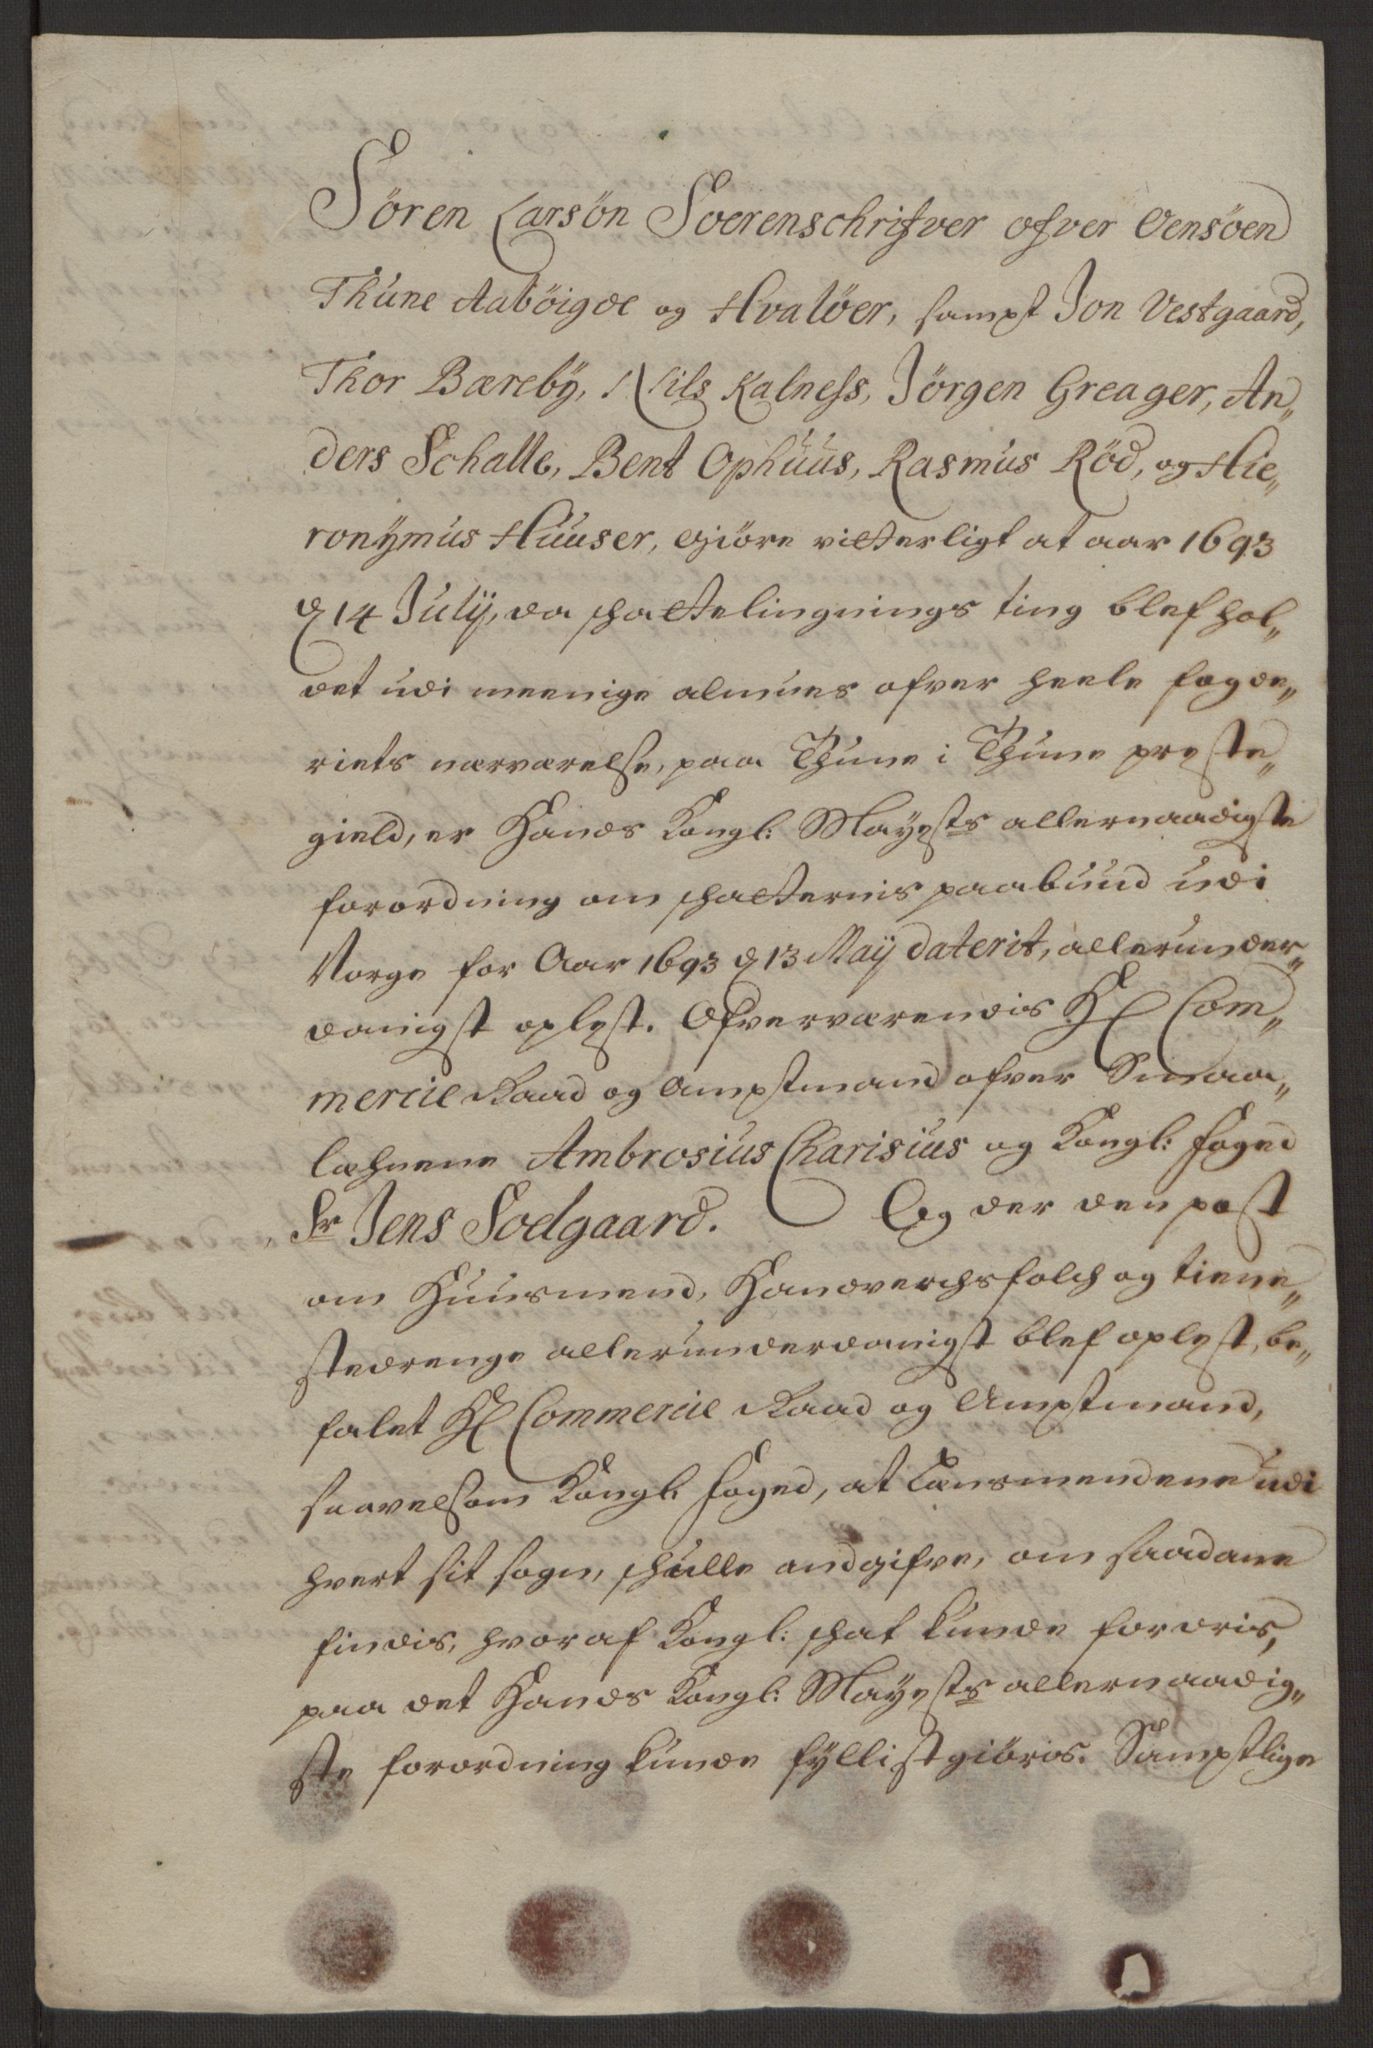 Sören Larsön Soerenschrifver ofver Oensöen
Thüne Aaböigde og Hvalöer, sampt Jon Vestgaard,
Thor Bæreby, Nils Kalness, Jörgen Greager, An„
ders Schalle, Bent Ophüüs, Rasmus Röd, og Hie„
ronÿmus Huuser, giöre vitterligt at aar 1693
d 14 Julÿ, da schattelignings ting blef hol„
det udi meenige almues ofver heele fogde„
riets nærværelse, paa Thune i Thune preste„
gield, er Hands Kongl: Mayests allernaadigste
forordning om schatternis paabuud udi
Norge for Aar 1693 d 13 Maÿ daterit, allerunder„
danigst oplæst. Ofverværendis Hl Com„
mercie Raad og Amptmand ofver Smaa„
læhnene Ambrosius Charisius og Kongl: foged
Sr Jens Soelgaard. Og der den post
om Huusmend, Handverchsfolch og tiene„
stedrenge allerunderdanigst blef oplæst, be„
falet Hl Commercie Raad og Amptmand,
saavelsom Kongl: foged, at Lænsmendene udi
hvert sit sogn, schulle andgifve, om saadane
findis, hvoraf Kongl: schat kunde fordris,
paa det Hands Kongl: Mayests allernaadig„
ste forordning kunde fyllistgiöris. Samptlige